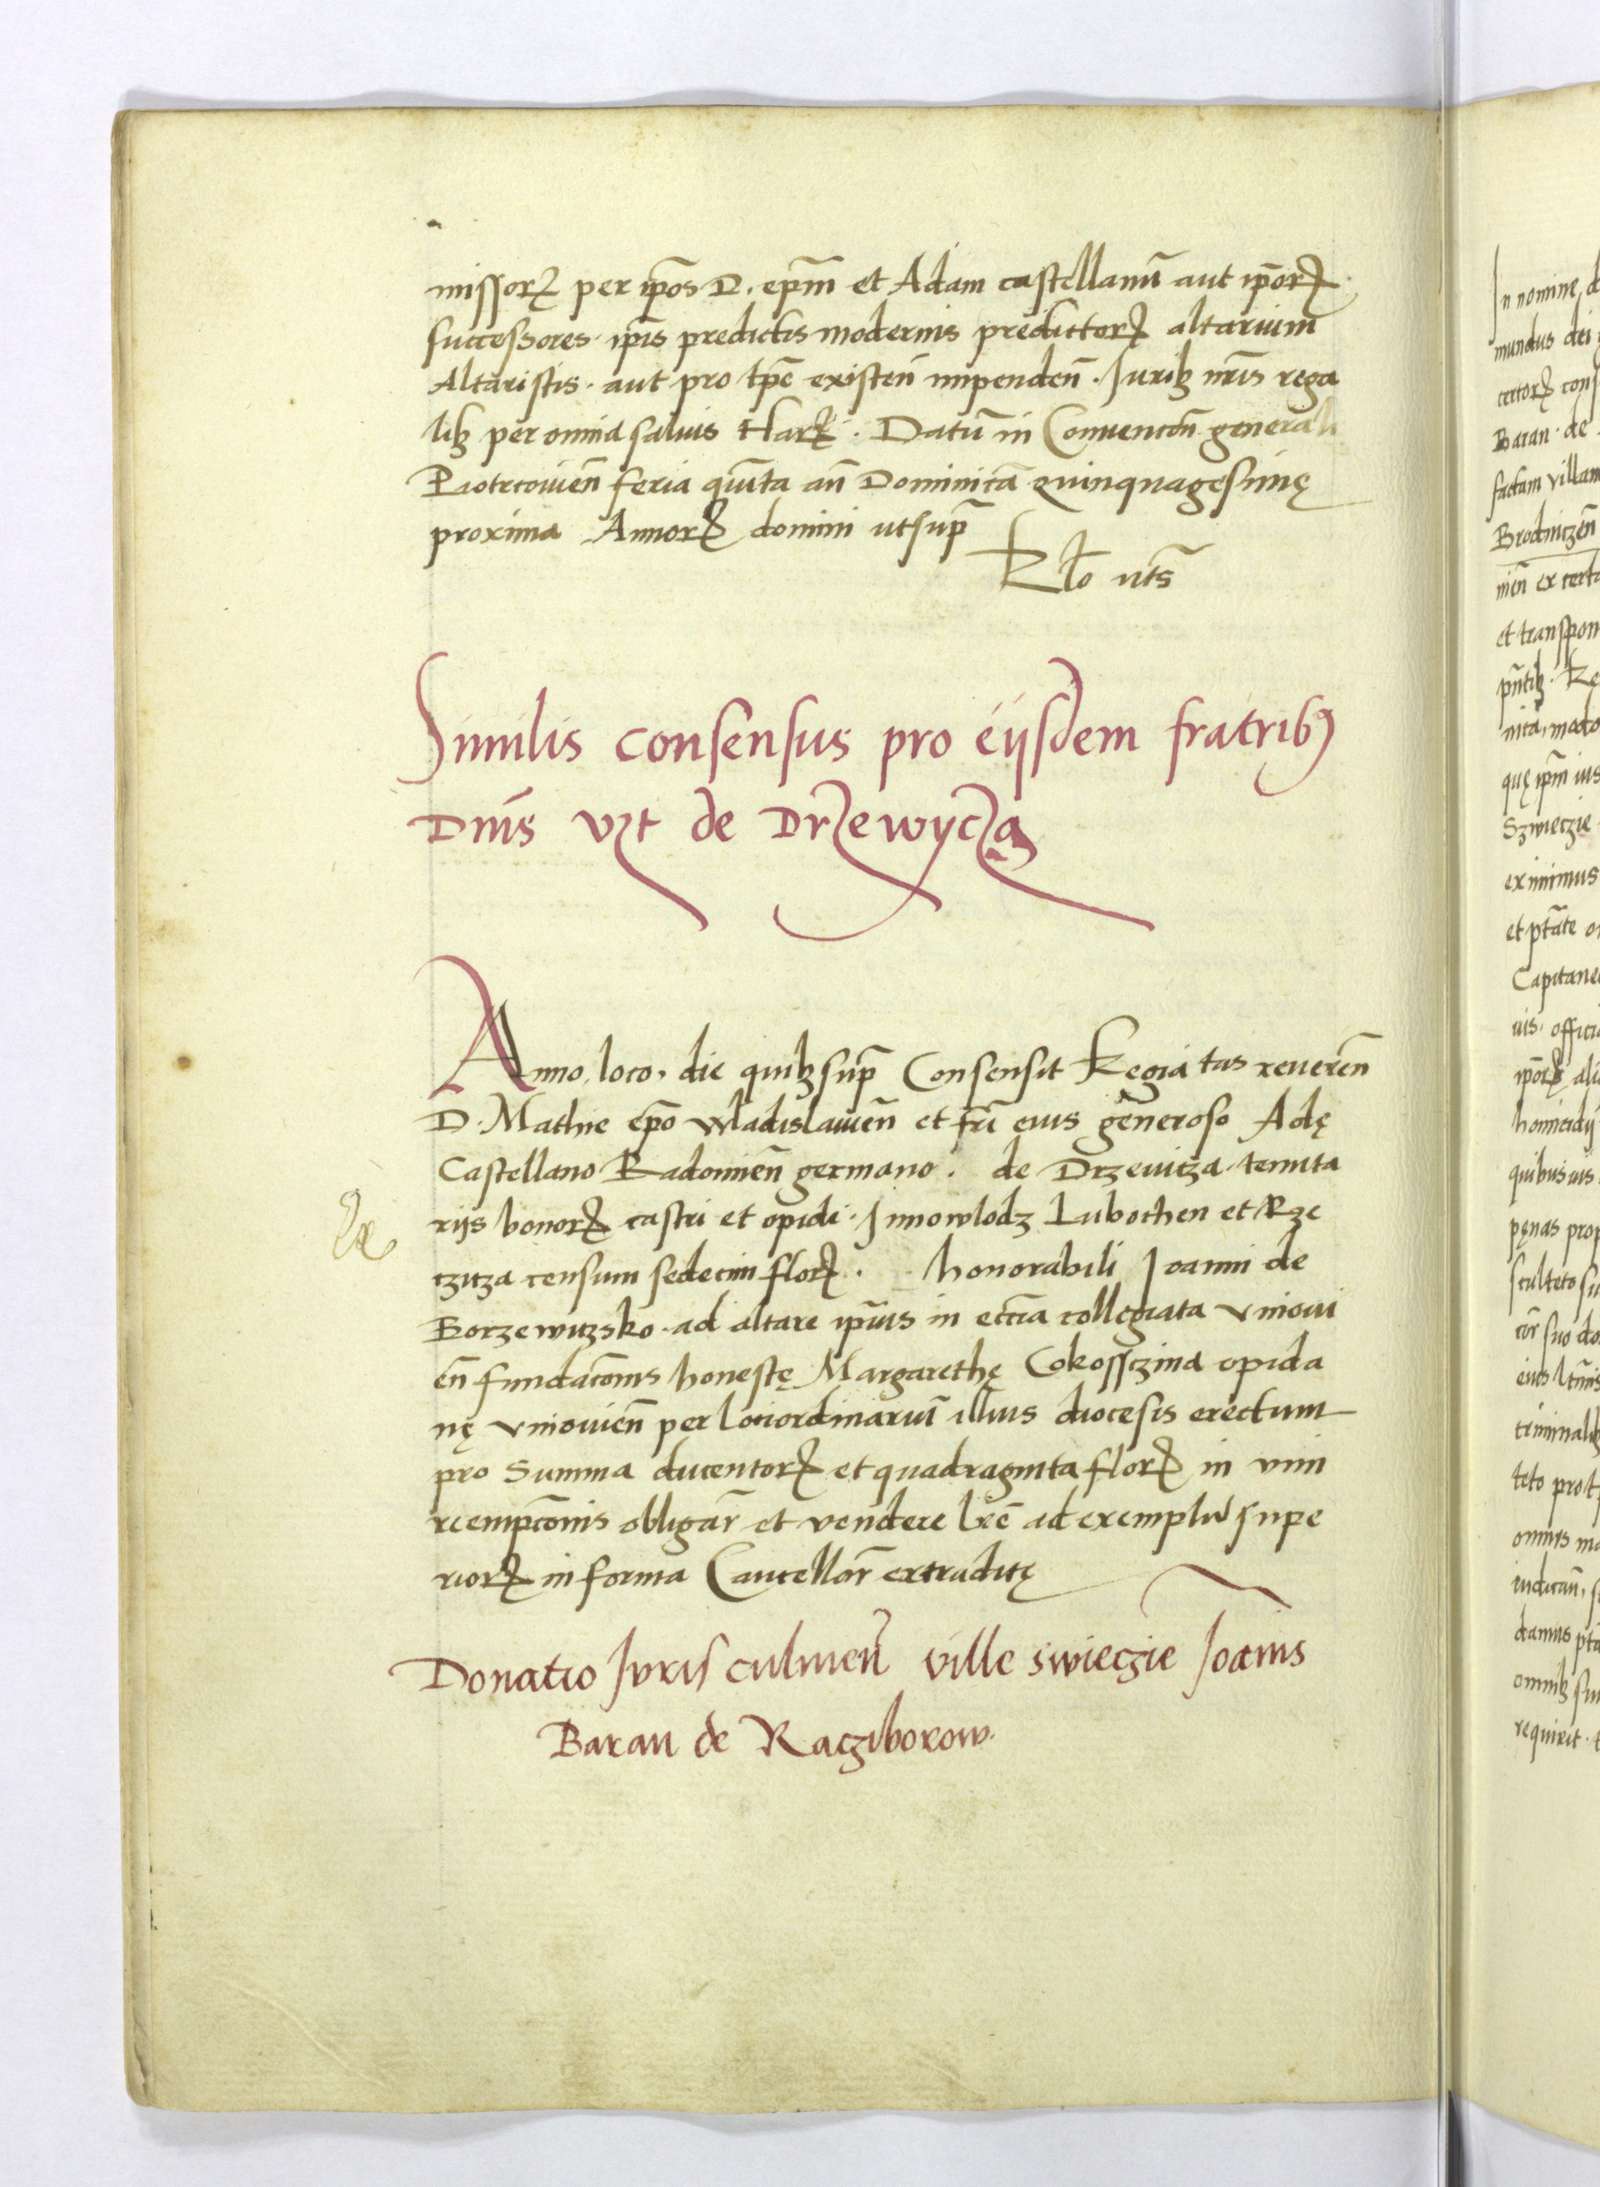 missorꝝ per ip̄os D. ep̄m et Adam castellanū aut ip̄orꝝ
successores. ip̄is predictis modernis predictorꝝ altarium
Altaristis. aut pro tp̄e existeñ impendeñ. Juribꝫ nr̄is rega
libꝫ per omnia saluis Harꝝ. Datū in Conuencōn generali
Piotrcouieñ feria quīta añ Dominicā quinquagesimę
proxima Annorꝝ domini utsup̄
Rło uts̄
Similis consensus pro eijsdem fratribꝰ
Dn̄is vꝫt de Drzewycza
Anno, loco, die quibꝫ sup̄ Consensit Regia tas reuereñ
D. Mathie ep̄o wladislauieñ et fr̄i eius generoso Adę
Castellano Radomieñ germano. de Drzeuicza. tenuta
rijs bonorꝝ castri et opidi. Jnnowlodz Lubochen et Rze
tzitza censum sedecim florꝝ. honorabili Joanni de
Borzewitzsko. ad altare ip̄ius in eccīa collegiata vnioui
eñ fundacōnis honestę Margarethę Cokossczina opida
nę vniouieñ per lociordinariū illius diocesis erectum
pro Summa ducentorꝝ et quadraginta florꝝ in vim
reempcōnis obligar̄ et vendere lr̄e ad exemplū supe
riorꝝ in forma Cancellar̄ extraditę
Donatio Juris culmeñ ville swieczie Joānis
Baran de Racziborow.
In nomine d
mundus dei
certorꝝ cons
Baran. de
factam villam
Brodniczeñ
nieñ ex certa
et transpon
pn̄tibꝫ. Re
nita, modo
quę ip̄m ius
Szwieczie
eximimus
et ptāte o
Capitane
uis. offici
ip̄orꝝ ali
homicidij
quibus uis
pęnas prop
sculteto su
cōr suo do
eius l̄rm̄is
criminalibꝫ
teto pro t
omnis ma
iudicañ, s
damus ptā
omnibꝫ sin
requirit. t